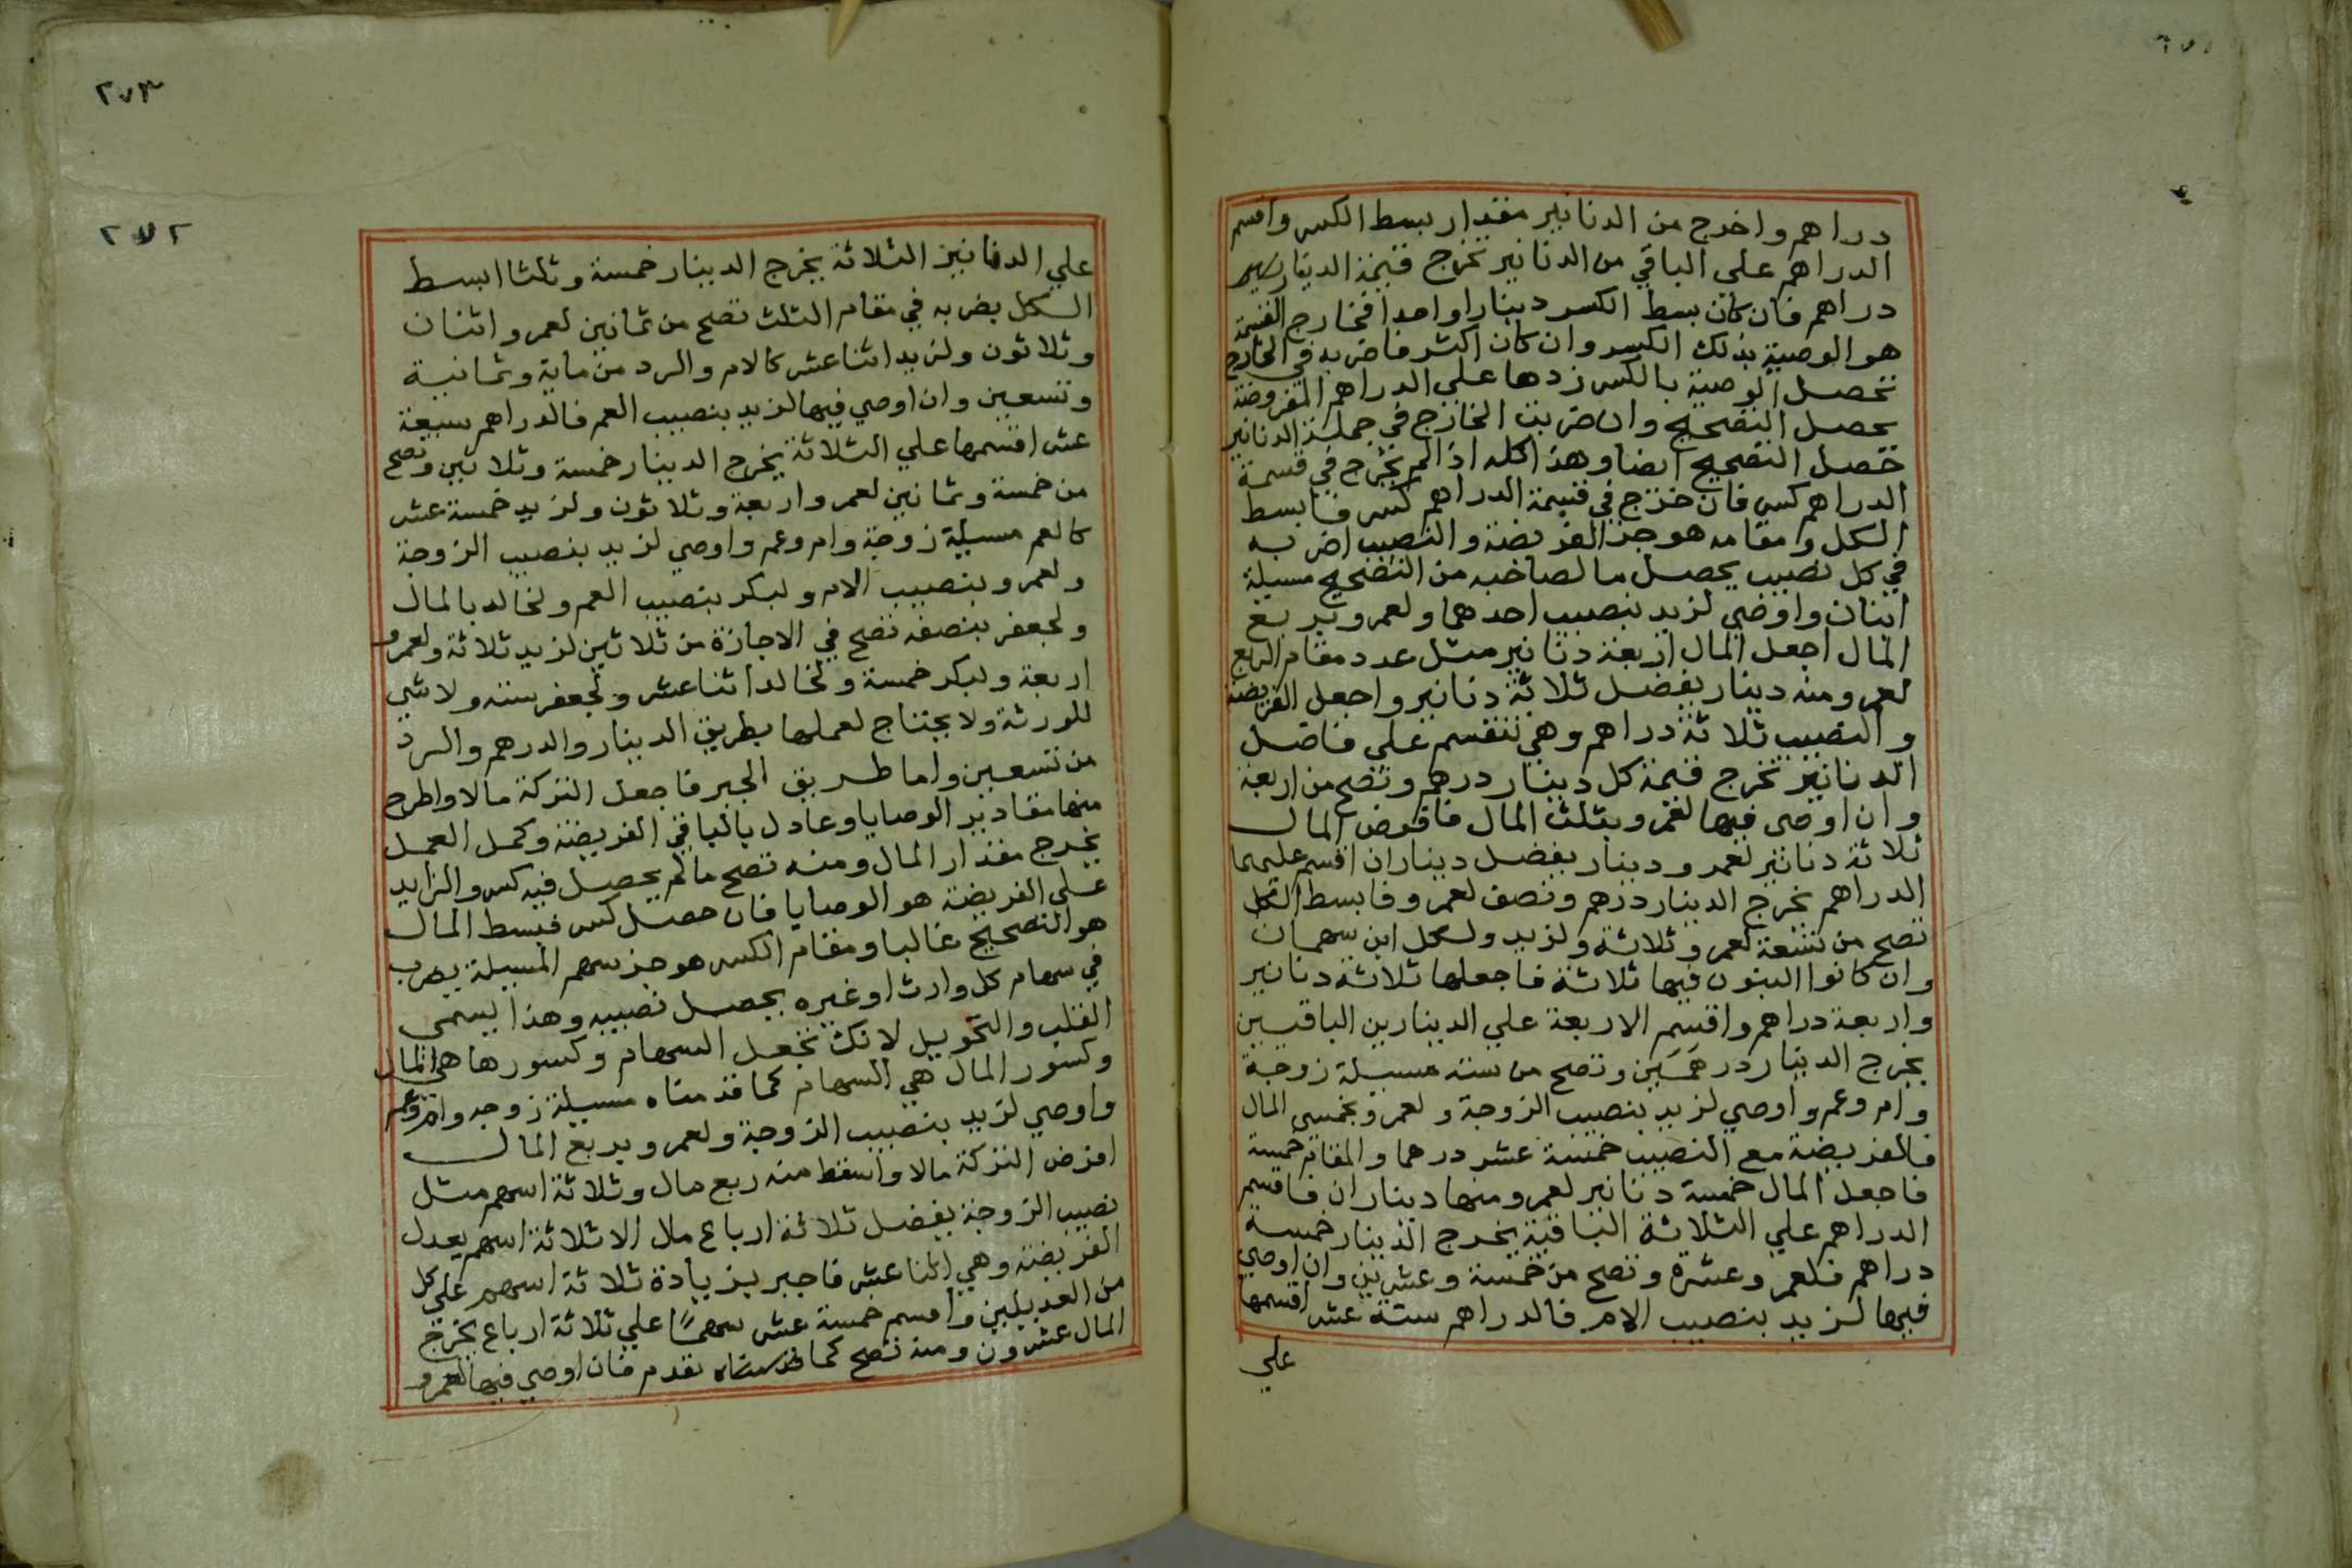 دراهم واخرج من الدنانير مقدار بسط الكسر واقسم
الدراهم علي الباقي من الدنانير تخرج قيمة الدينار
دراهم فان كان بسط الكسر دينارا واحدا فخارج القسمة
هو الوصية بذلك الكسر وان كان اكثر فاضربه في الخارج
تحصل الوصية بالكسر زدها علي الدراهم المفروضة
يحصل التصحيح وان ضربت الخارج في جملة الدنانير
حصل التصحيح ايضا وهذا كله اذا لم يخرج في قسمة
الدراهم كسر فان خرج في قسمة الدراهم كسر فابسط
الكل ومقامه هو جزالفريضة والنصيب اضربه
في كل نصيب يحصل ما لصاحبه من التصحيح مسيلة
ابنان واوصي لزيد بنصيب احدهما ولعمرو بربع
المال اجعل المال اربعة دنانير مثل عدد مقام الربع
لعمرو منه دينار يفضل ثلاثة دنانير واجعل الفريضة
والنصيب ثلاثة دراهم وهي تنقسم علي فاضل
الدنانير تخرج قيمة كل دينار درهم وتصح من اربعة
وان اوصي فيها لعمرو بثلث المال فافرض المال
ثلاثة دنانير لعمرو دينار يفضل ديناران اقسم عليهما
الدراهم يخرج الدينار درهم ونصف لعمرو فابسط الكل
تصح من تسعة لعمرو ثلاثة ولزيد ولكل ابن سهمان
وان كانوا البنون فيها ثلاثة فاجعلها ثلاثة دنانير
واربعة دراهم واقسم الاربعة علي الدينارين الباقيين
يخرج الدينار درهمين وتصح من ستة مسيلة زوجة
وام وعم واوصي لزيد بنصيب الزوجة ولعمرو بخمسي المال
فالفريضة مع النصيب خمسة عشر درهما والمقام خمسة
فاجعل المال خمسة دنانير لعمرو منها ديناران فاقسم
الدراهم علي الثلاثة الباقية يخرج الدينار خمسة
دراهم فلعمرو عشرة وتصح من خمسة وعشرين وان اوصي
فيها لزيد بنصيب الام فالدراهم ستة عشر اقسمها
علي
٢٧٣
٢٧٢
علي الدنانير الثلاثة يخرج الدينار خمسة وثلثا ابسط
الكل بضربه في مقام الثلث تصح من ثمانين لعمرو اثنان
وثلاثون ولزيد اثنا عشر كالام والرد من ماية وثمانية
وتسعين وان اوصي فيها لزيد بنصيب العم فالدراهم سبعة
عشر اقسمها علي الثلاثة يخرج الدينار خمسة وثلاثين وتصح
من خمسة وثمانين لعمرو اربعة وثلاثون ولزيد خمسة عشر
كالعم مسيلة زوجة وام وعم واوصي لزيد بنصيب الزوجة
ولعمرو بنصيب الام ولبكر بنصيب العم ولخالد بالمال
ولجعفر بنصفه تصح في الاجازة من ثلاثين لزيد ثلاثة ولعمرو
اربعة ولبكر خمسة ولخالد اثنا عشر ولجعفر ستة ولا شي
للورثة ولا يحتاج لعملها بطريق الدينار والدرهم والرد
من تسعين واما طريق الجبر فاجعل التركة مالا واطرح
منها مقادير الوصايا وعادل بالباقي الفريضة وكمل العمل
يخرج مقدار المال ومنه تصح مالم يحصل فيه كسر والزايد
علي الفريضة هو الوصايا فان حصل كسر فبسط المال
هو التصحيح غالبا ومقام الكسر هو جز سهم المسيلة يضرب
في سهام كل وارث اوغيره يحصل نصيبه وهذا يسمي
القلب والتحويل لانك تجعل السهام وكسورها هي المال
وكسور المال هي السهام كما قدمناه مسيلة زوجه وام وعم
واوصي لزيد بنصيب الزوجة ولعمرو بربع المال
افرض التركة مالا واسقط منه ربع مال وثلاثة اسهم مثل
نصيب الزوجة يفضل ثلاثة ارباع مال الا ثلاثة اسهم يعدل
الفريضة وهي اثنا عشر فاجبر بزيادة ثلاثة اسهم علي كل
من العديلين واقسم خمسة عشر سهما علي ثلاثة ارباع يخرج
المال عشرون ومنه تصح كما تقدم فان اوصي فيها لعمرو